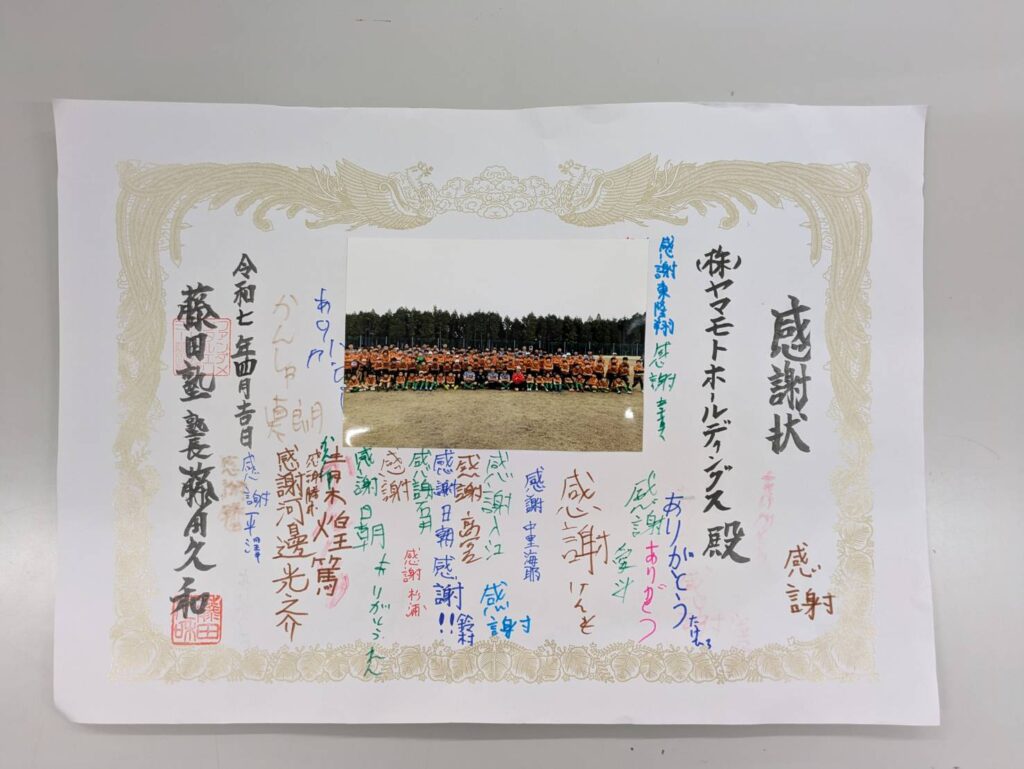 感謝状
(株)ヤマモトホールディングス 殿
感謝
感謝 東隆翔
感謝
ありがとう たけひろ
ありがとう
感謝 愛斗
感謝 けんと
感謝 中里海耶
感謝
感謝 入江
感謝 高宮
感謝 日朝
感謝!! 鈴村
感謝 石井
感謝 杉浦
感謝
感謝 日朝
ありがとう
青木煌篤
感謝 勝木
感謝 河邊光之介
かんしゃ
感謝 平澤
令和七年四月吉日
藤田塾 塾長 藤田久和